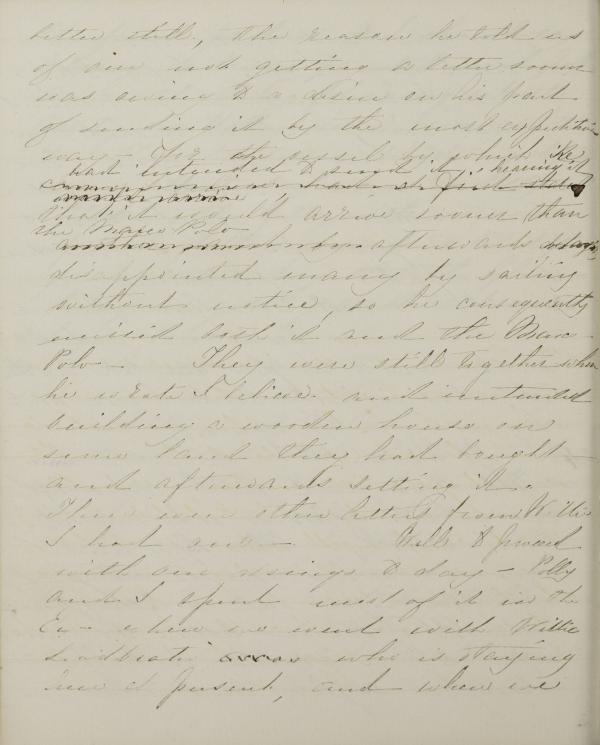 better still, the reason he told us
of our not getting a letter sooner
was owing to a desire on his part
of sending it by the most expeditious
way. For the vessel by which he
had intended to send it, hearing it
that it would arrive sooner than
the Marco Polo
afterwards
disappointed many by sailing
without notice, so he consequently
missed both it and the Marco
Polo — They were still together when
he wrote I believe. and intended
building a wooden house on
some land they had bought —
and afterwards letting it.
There were other letters from Willie
I had one — Well to proceed
with our doings to day — Polly
and I spent most of it in the
when we went with Willie
who is staying
here at present, and when we